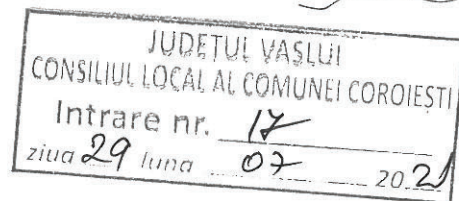 JUDEȚUL VASLUI
CONSILIUL LOCAL AL COMUNEI COROIEȘTI
Intrare nr. 17
ziua 29 luna 07 2021